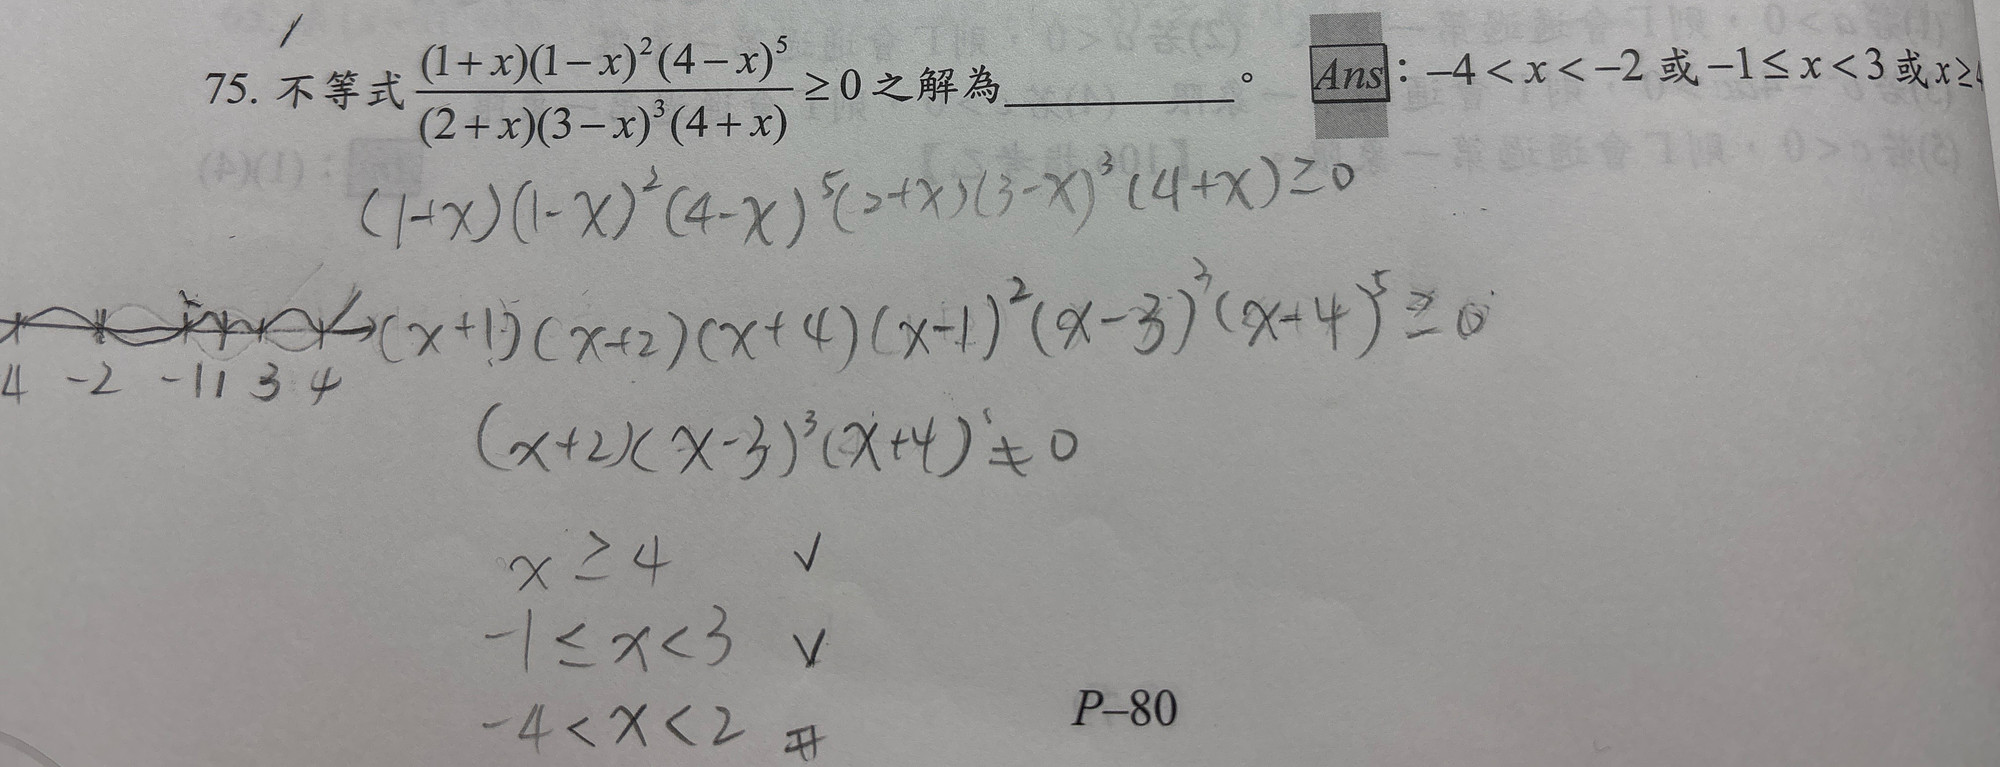 75. 不等式 (1+x)(1−x)²(4−x)⁵ / (2+x)(3−x)³(4+x) ≥ 0 之解為＿＿＿＿＿。 Ans：−4 < x < −2 或 −1 ≤ x < 3 或 x ≥
(1+x)(1-x)²(4-x)⁵(2+x)(3-x)³(4+x) ≥ 0
(x+1)(x+2)(x+4)(x-1)²(x-3)³(x+4)⁵ ≥ 0
4 -2 -1 1 3 4
(x+2)(x-3)³(x+4) ≠ 0
x ≥ 4 ✓
-1 ≤ x < 3 ✓
-4 < x < 2 #
P–80